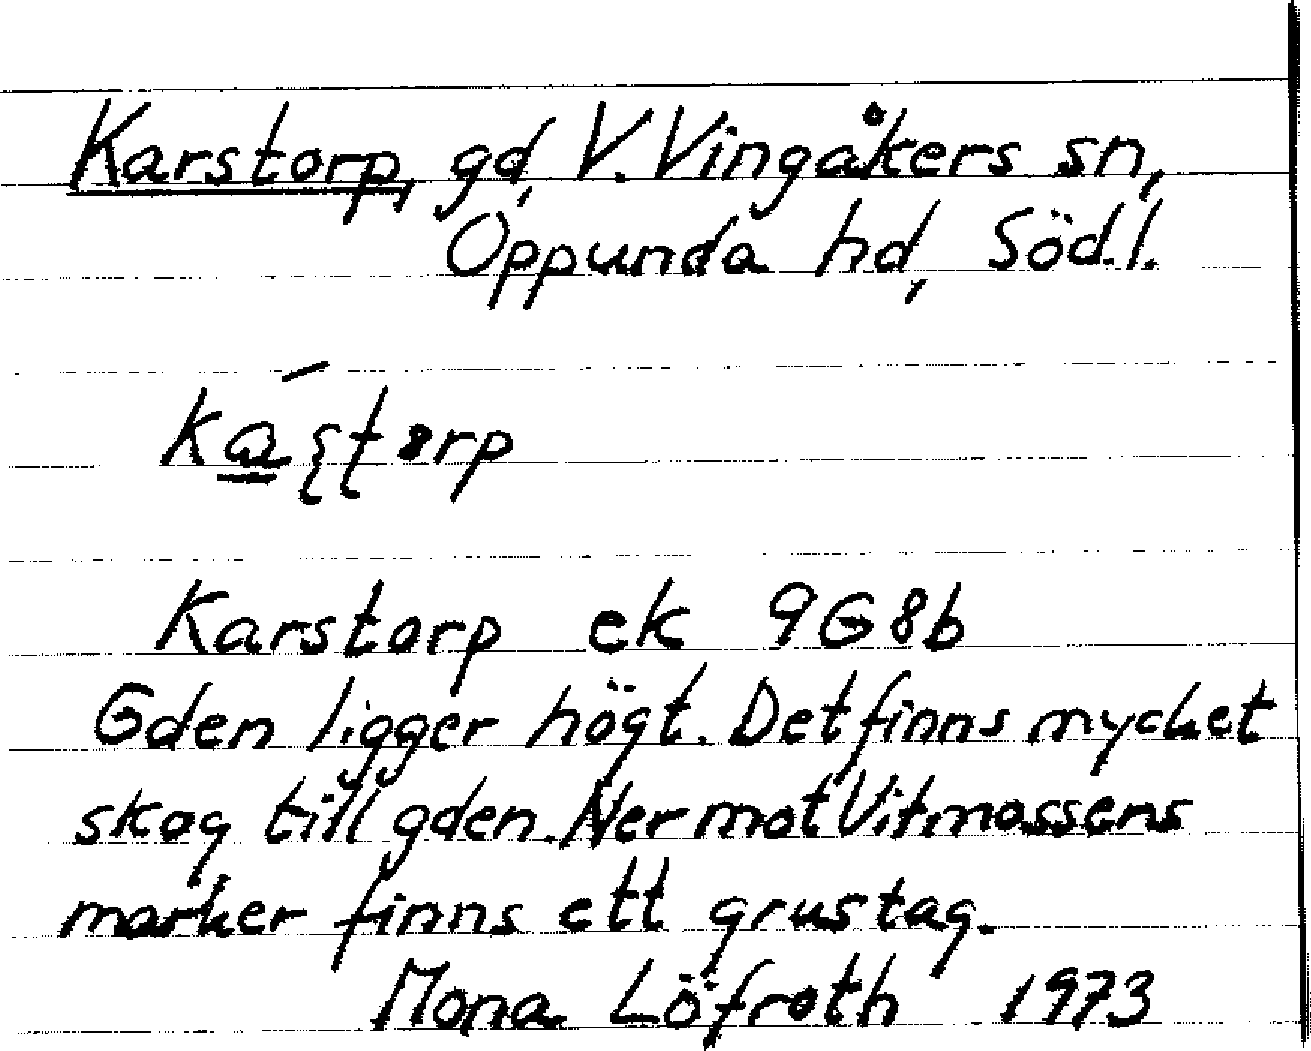 Karstorp, gd, V. Vingåkers sn,
Oppunda hd, Södl.
Karstorp ek 9G8b
Gden ligger högt. Det finns mycket
skog till gden. Ner mot Vitmossens
marker finns ett grustag.
Mona Löfroth 1973